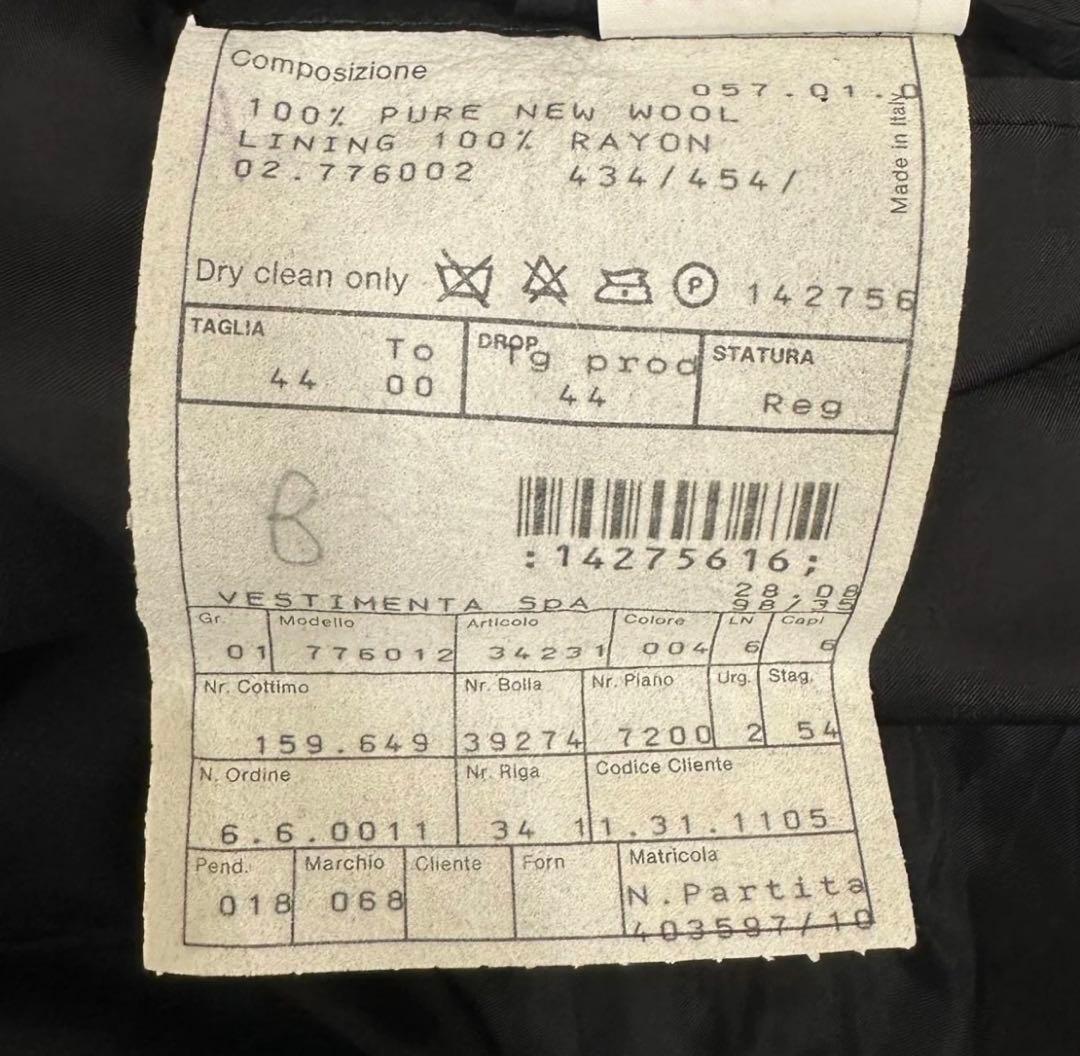 Composizione
057.01.0
100% PURE NEW WOOL
LINING 100% RAYON
02.776002 434/454/
Made in Italy
Dry clean only P 142756
TAGLIA DROP STATURA
To Tg prod
44 00 44 Reg
B
:14275616;
VESTIMENTA SpA 28.08
98/35
Gr. Modello Articolo Colore LN Capi
01 776012 34231 004 6 6
Nr. Cottimo Nr. Bolla Nr. Piano Urg. Stag.
159.649 39274 7200 2 54
N. Ordine Nr. Riga Codice Cliente
6.6.0011 34 11.31.1105
Pend. Marchio Cliente Forn Matricola
018 068 N.Partita
403597/10